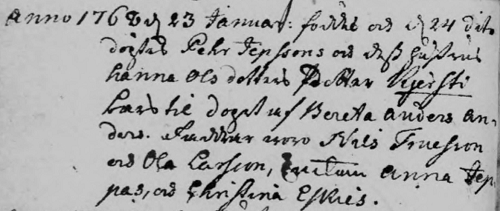 Anno 1768 d 23 Januar: foddes och d 24 dito
döptes Pehr Jepssons och dess hustrus
hanna Ols dotters Dotter Kjersti
bars til dopet af Bereta Anders An-
ders. Faddrar woro Nils Truesson
och Ola Larsson, Anna Jep-
pas, och Christina Eskies.